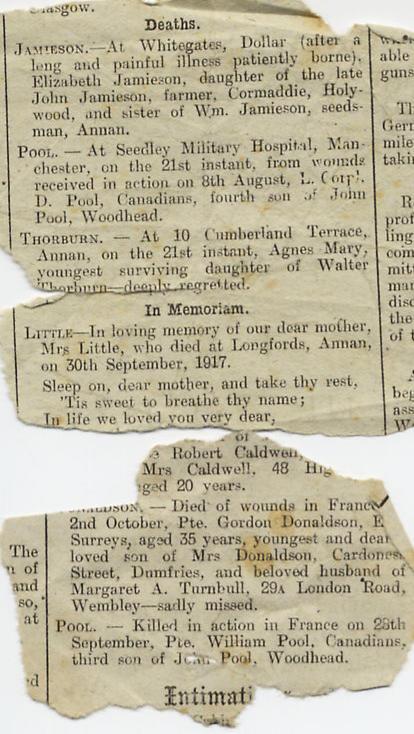 Glasgow.
Deaths.
JAMIESON.—At Whitegates, Dollar (after a
long and painful illness patiently borne),
Elizabeth Jamieson, daughter of the late
John Jamieson, farmer, Cormaddie, Holy-
wood, and sister of Wm. Jamieson, seeds-
man, Annan.
POOL. — At Seedley Military Hospital, Man-
chester, on the 21st instant, from wounds
received in action on 8th August, L. Corpl.
D. Pool, Canadians, fourth son of John
Pool, Woodhead.
THORBURN. — At 10 Cumberland Terrace,
Annan, on the 21st instant, Agnes Mary,
youngest surviving daughter of Walter
Thorburn—deeply regretted.
able
guns
Th
Germ
mile
takin
R
prof
ling
com
mit
mar
disc
the
of t
beg
ass
In Memoriam.
LITTLE—In loving memory of our dear mother,
Mrs Little, who died at Longfords, Annan,
on 30th September, 1917.
Sleep on, dear mother, and take thy rest,
'Tis sweet to breathe thy name;
In life we loved you very dear,
of
Robert Caldwell,
Mrs Caldwell, 48 Hig
aged 20 years.
DONALDSON. — Died of wounds in France
2nd October, Pte. Gordon Donaldson, E
Surreys, aged 35 years, youngest and dear
loved son of Mrs Donaldson, Cardoness
Street, Dumfries, and beloved husband of
Margaret A. Turnbull, 29A London Road,
Wembley—sadly missed.
POOL. — Killed in action in France on 28th
September, Pte. William Pool, Canadians,
third son of John Pool, Woodhead.
The
n of
and
so,
at
d
Intimati